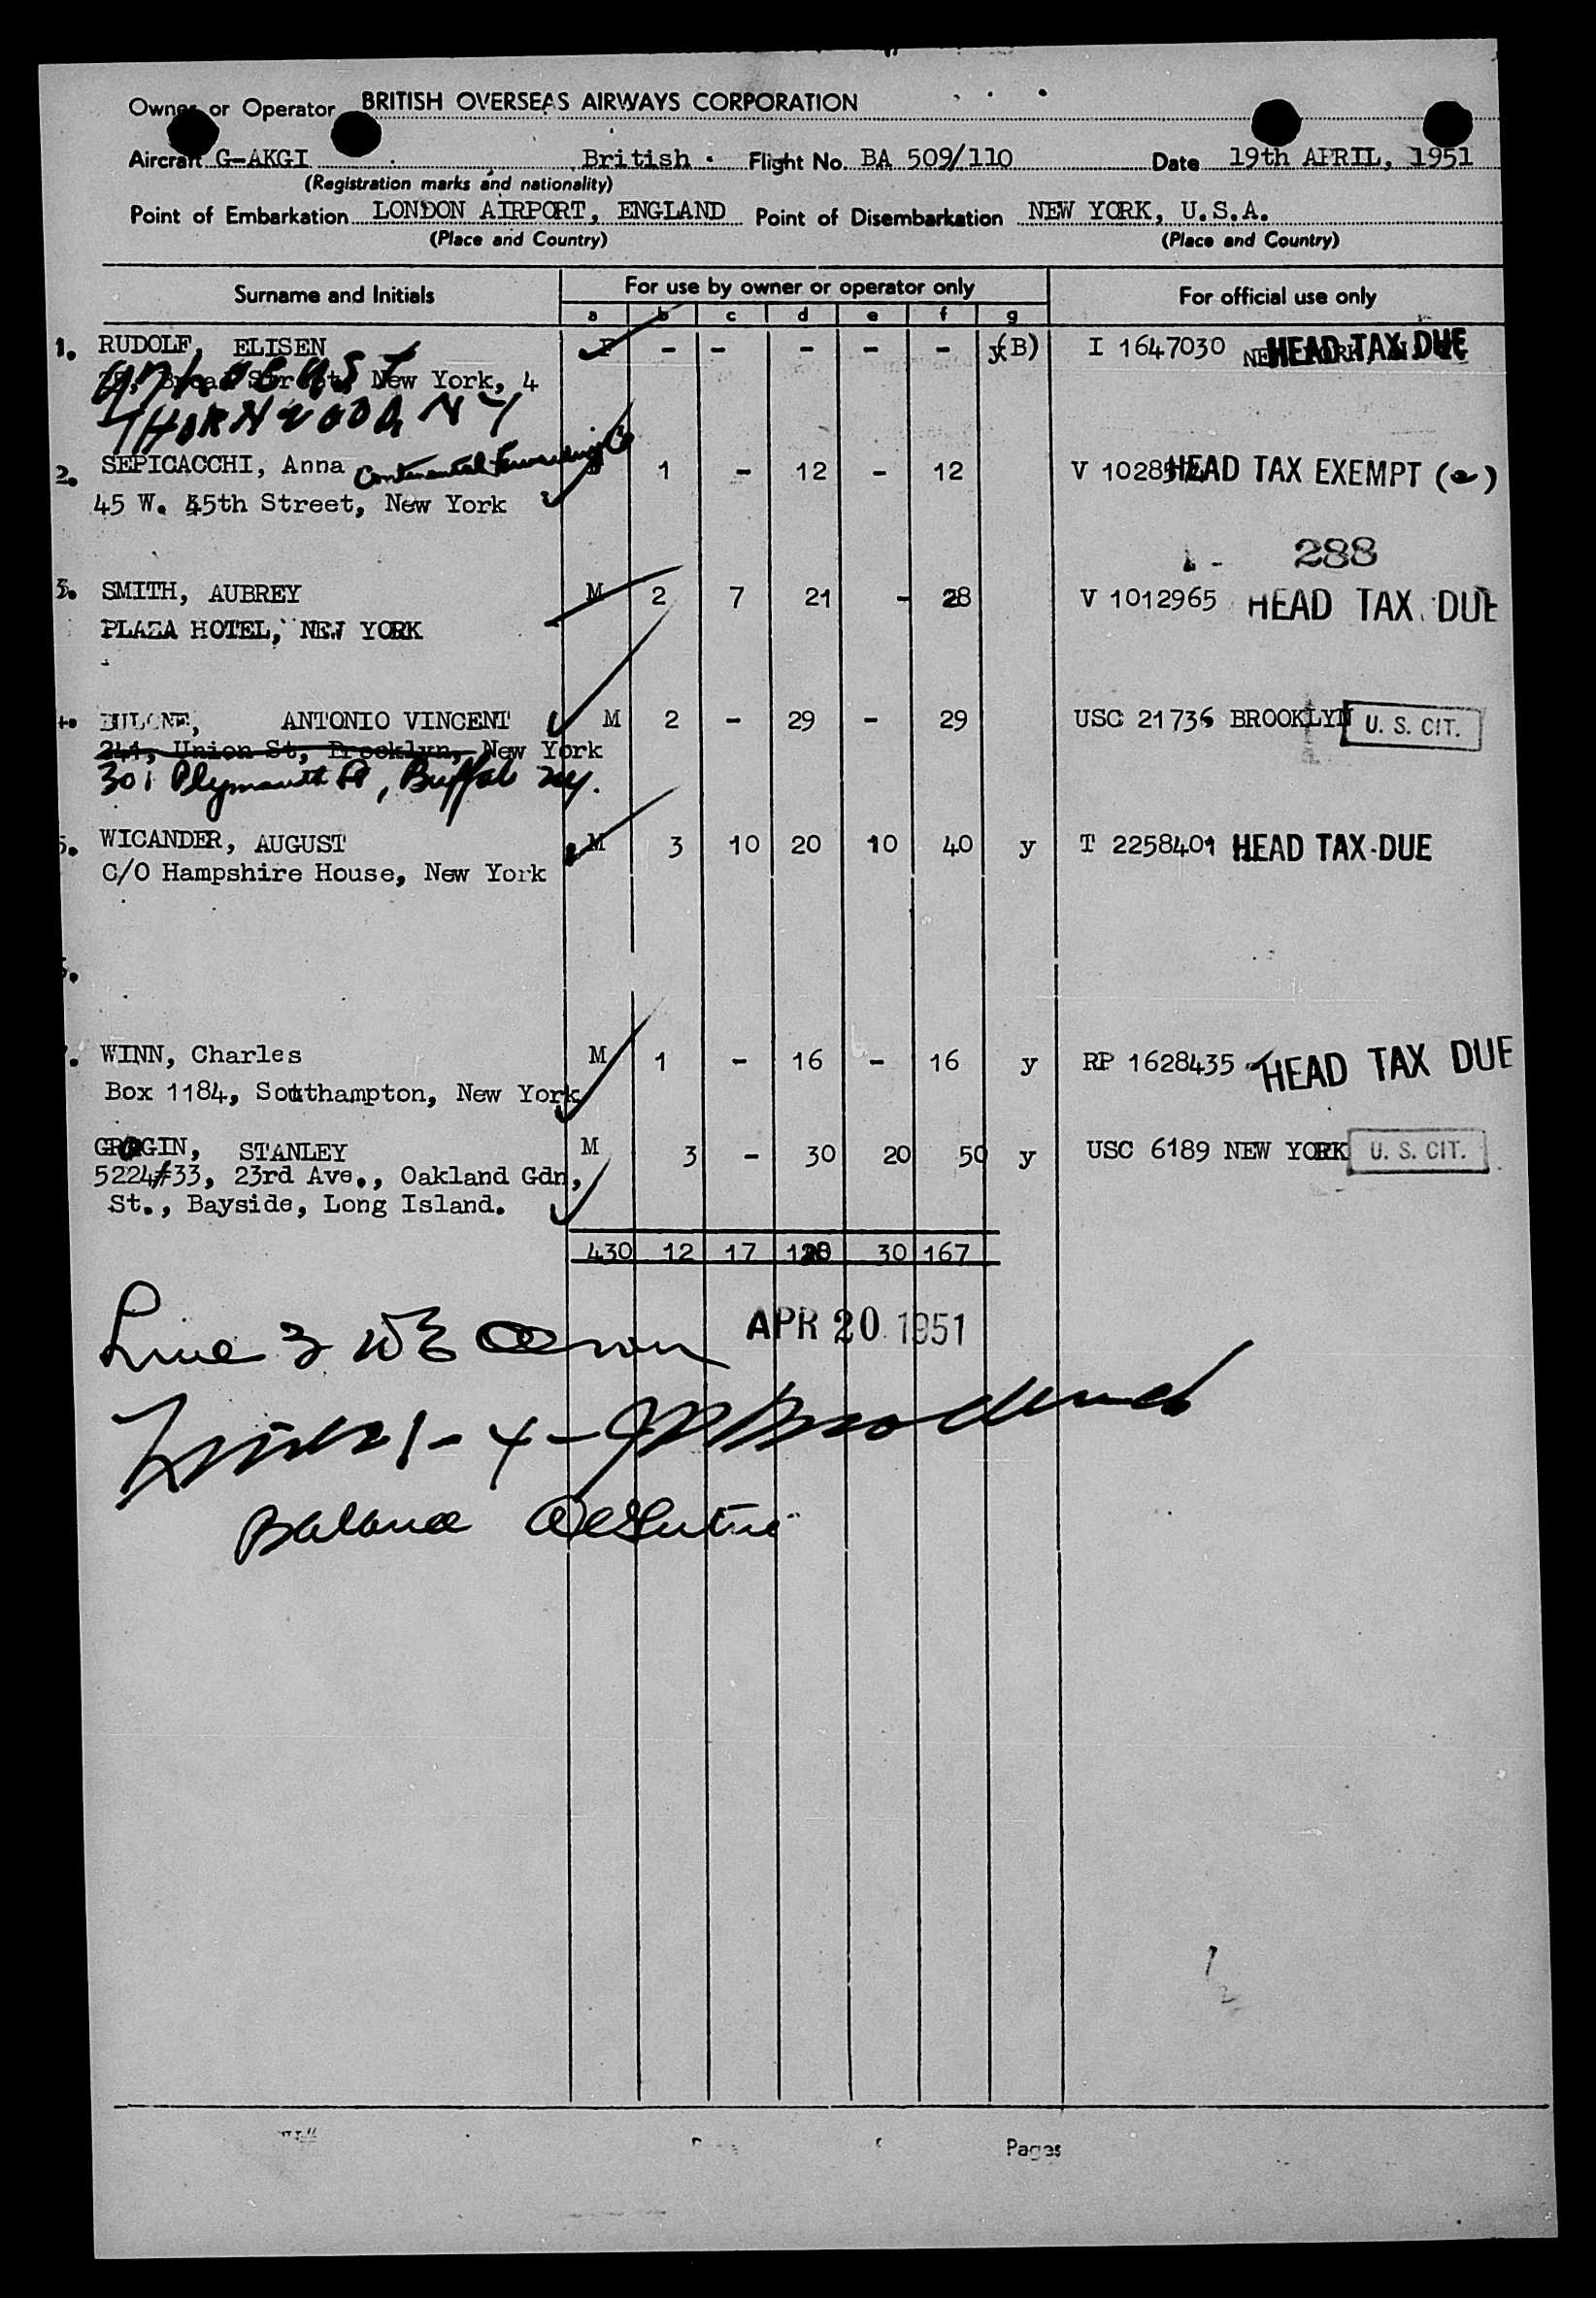 Owner or Operator BRITISH OVERSEAS AIRWAYS CORPORATION
Aircraft G-AKGI British. Flight No. BA 509/110 Date 19th APRIL, 1951
(Registration marks and nationality)
Point of Embarkation LONDON AIRPORT, ENGLAND Point of Disembarkation NEW YORK, U.S.A.
(Place and Country) (Place and Country)
Surname and Initials For use by owner or operator only For official use only
a b c d e f g
1. RUDOLF, ELISEN F - - - - - y(B) I 1647030 HEAD TAX DUE
New York, 4
THORNWOOD, NY
2. SEPICACCHI, Anna Continental Forwarding Co 1 - 12 - 12 V 1028574 HEAD TAX EXEMPT (e)
45 W. 45th Street, New York
288
3. SMITH, AUBREY M 2 7 21 - 28 V 1012965 HEAD TAX DUE
PLAZA HOTEL, NEW YORK
4. ANTONIO VINCENT M 2 - 29 - 29 USC 21736 BROOKLYN U. S. CIT.
241, Union St, Brooklyn, New York
301 Plymouth St, Buffalo NY.
5. WICANDER, AUGUST M 3 10 20 10 40 y T 2258401 HEAD TAX DUE
C/O Hampshire House, New York
6.
WINN, Charles M 1 - 16 - 16 y RP 1628435 HEAD TAX DUE
Box 1184, Southampton, New York
STANLEY M 3 - 30 20 50 y USC 6189 NEW YORK U. S. CIT.
5224#33, 23rd Ave., Oakland Gdn,
St., Bayside, Long Island.
430 12 17 128 30 167
APR 20 1951
Line 3
1 - 4 -
Balance
Pages